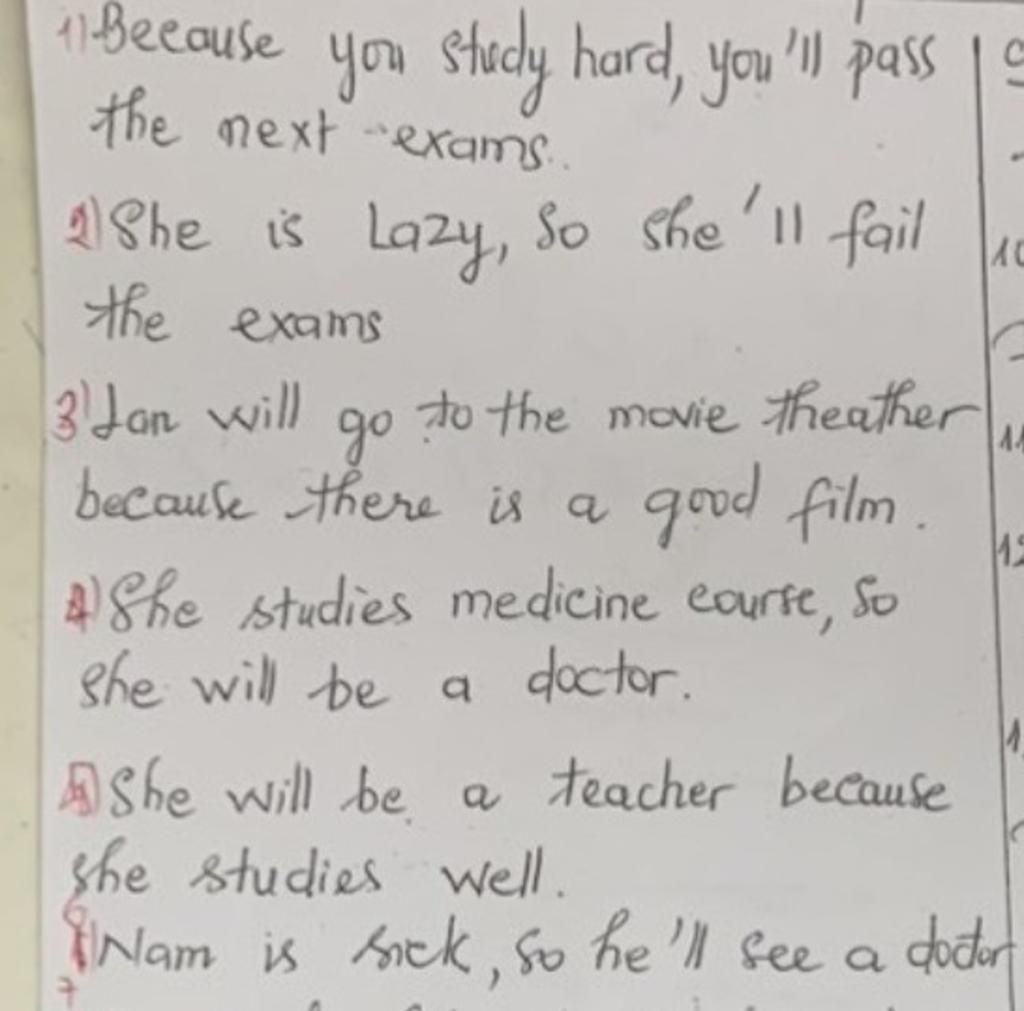 1) Because you study hard, you'll pass
the next exams.
2) She is Lazy, So she'll fail
the exams
3) Lan will go to the movie theather
because there is a good film.
4) She studies medicine course, So
she will be a doctor.
5) She will be a teacher because
she studies well.
Nam is sick, so he'll see a doctor
7
10
11
12